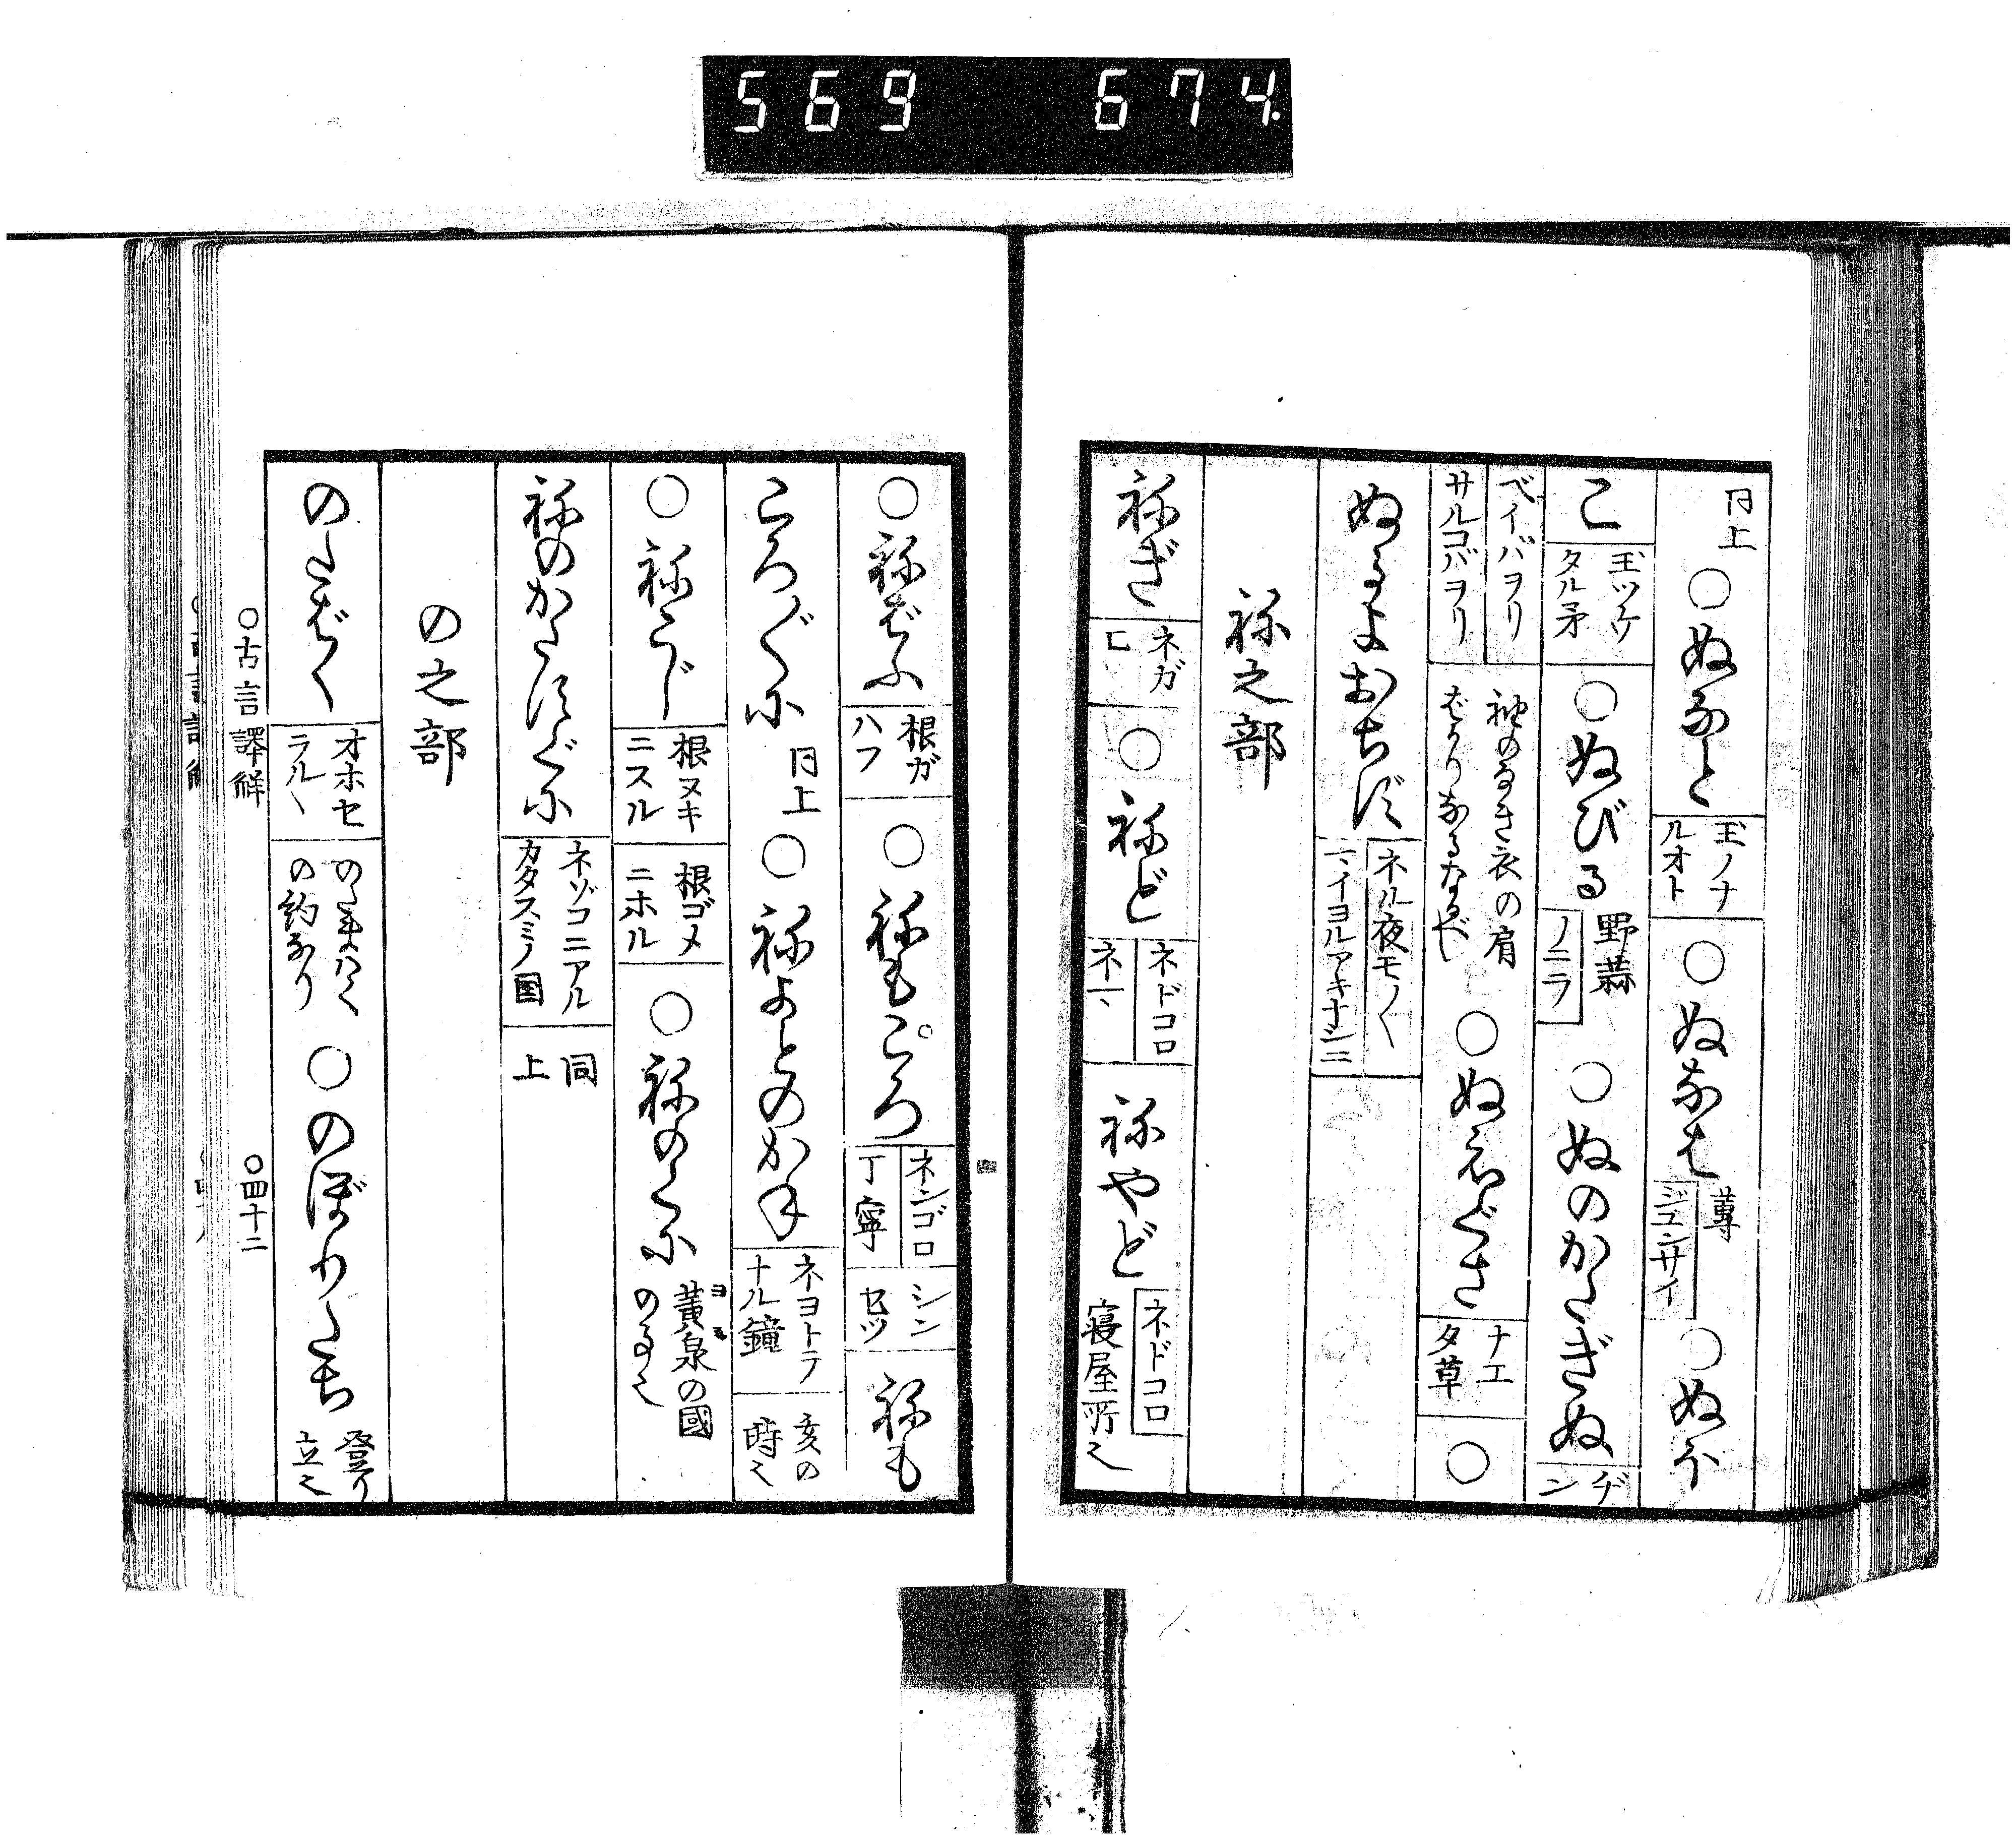 569 674.
同上 ○ぬなと 玉ノナルオト ○ぬなは 蓴 ジユンサイ ○ぬほ
こ 玉ツケタル矛 ○ぬびる 野蒜 ノニラ ○ぬのかたぎぬ ヂン
ベイバヲリ サルコバヲリ 袖のなき衣の肩ばかりなるなるべし ○ぬえぐさ ナエタ草 ○
ぬるよおちず ネル夜モノ〱 一ヽイヨルアキナシニ
ね之部
ねぎ ネガヒ ○ねど ネドコロ ネ一ヽ ねやど ネドコロ 寝屋所也
○ねばふ 根ガハフ ○ねもころ ネンゴロ 丁寧 シンセツ ねも
ころ〴〵に 同上 ○ねよとのかね ネヨトテナル鐘 亥の時也
○ねこじ 根ヌキニスル 根ゴメニホル ○ねのくに 黄泉の國のる也
ねのかたすくに ネゾコニアルカタスミノ国 同上
の之部
のたばく オホセラルヽ のたまはくの約なり ○のぼりたち 登り立也
○古言譯解 ○四十二